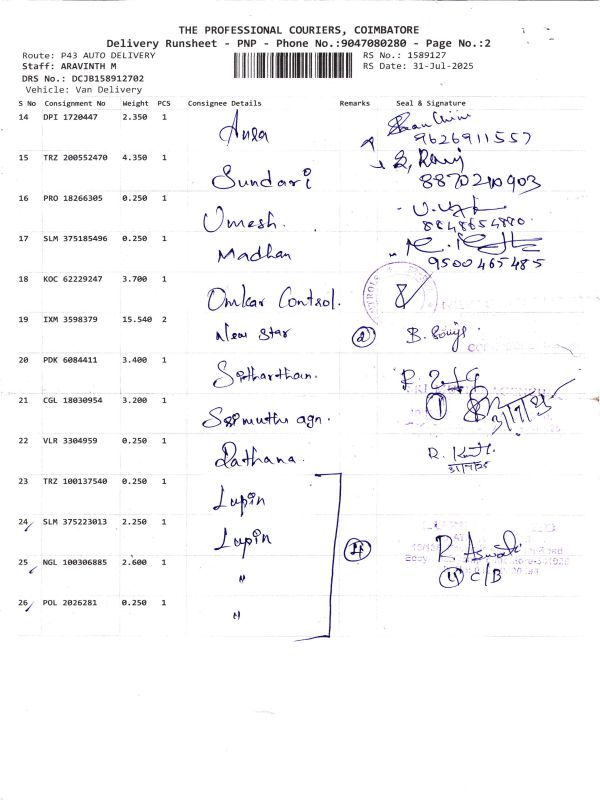 THE PROFESSIONAL COURIERS, COIMBATORE
Delivery Runsheet - PNP - Phone No.:9047080280 - Page No.:2
Route: P43 AUTO DELIVERY RS No.: 1589127
Staff: ARAVINTH M RS Date: 31-Jul-2025
DRS No.: DCJB158912702
Vehicle: Van Delivery
S No Consignment No Weight PCS Consignee Details Remarks Seal & Signature
14 DPI 1720447 2.350 1
9626911557
15 TRZ 200552470 4.350 1 Sundari
8870210903
16 PRO 18266305 0.250 1 Umesh.
17 SLM 375185496 0.250 1 Madhan
9500465485
18 KOC 62229247 3.700 1 Omkar Control.
19 IXM 3598379 15.540 2 New Star 2
20 PDK 6084411 3.400 1 Sitharthan.
21 CGL 18030954 3.200 1 1 31/7/25
22 VLR 3304959 0.250 1 Rathana.
31/7/25
23 TRZ 100137540 0.250 1 Lupin
24 SLM 375223013 2.250 1 Lupin 4
25 NGL 100306885 2.600 1 " 4 C/B
26 POL 2026281 0.250 1 "